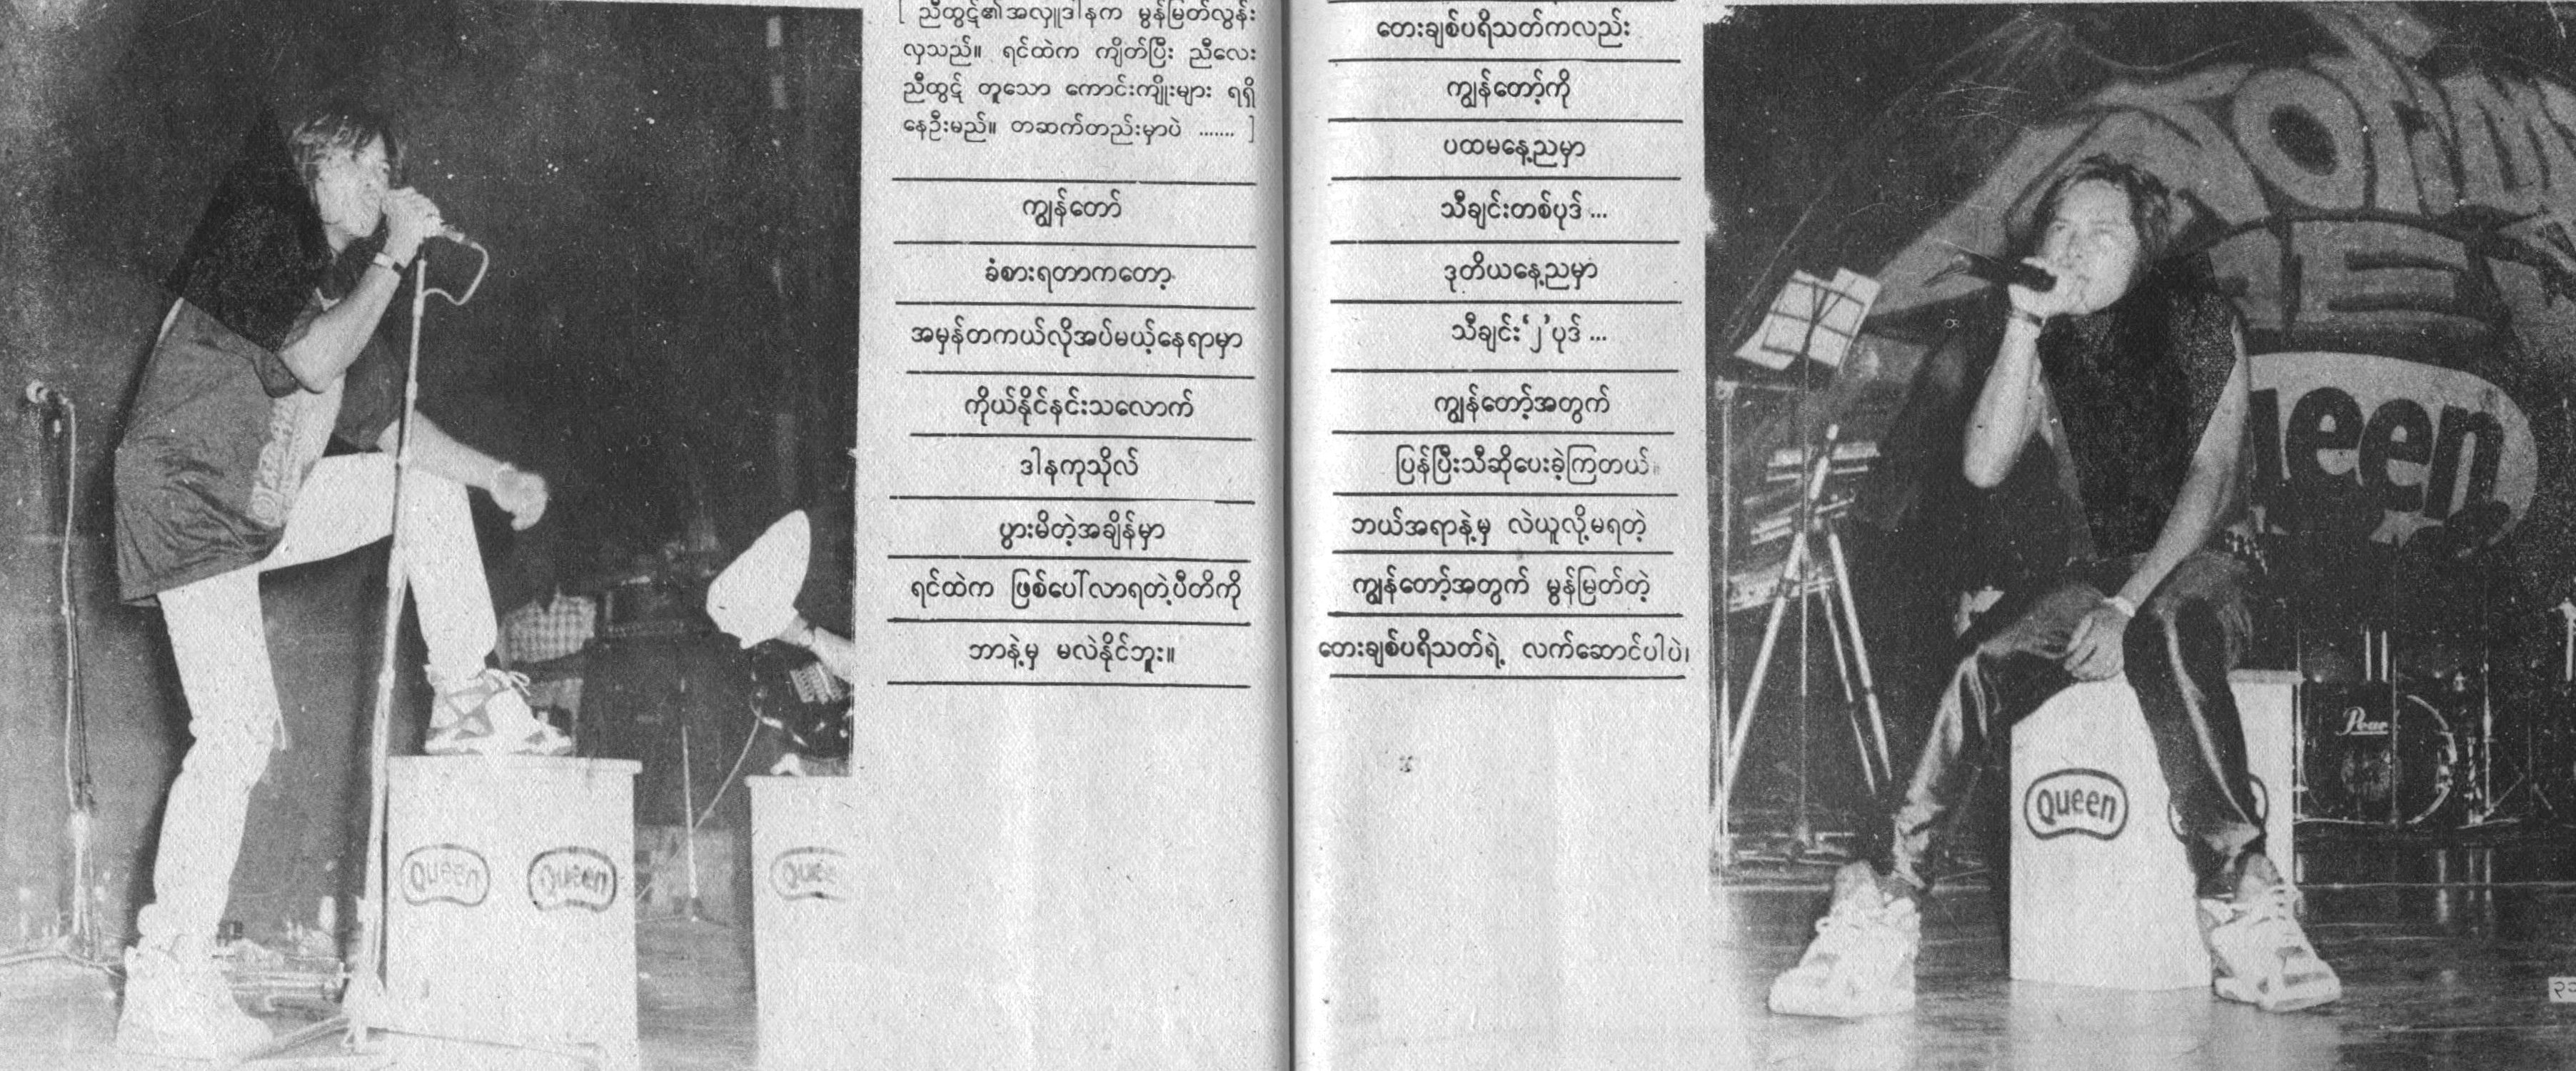 [ ညီထွဋ်၏အလှူဒါနက မွန်မြတ်လွန်း
လှသည်။ ရင်ထဲက ကျိတ်ပြီး ညီလေး
ညီထွဋ် တူသော ကောင်းကျိုးများ ရရှိ
နေဦးမည်။ တဆက်တည်းမှာပဲ ....... ]
ကျွန်တော်
ခံစားရတာကတော့
အမှန်တကယ်လိုအပ်မယ့်နေရာမှာ
ကိုယ်နိုင်နင်းသလောက်
ဒါနကုသိုလ်
ပွားမိတဲ့အချိန်မှာ
ရင်ထဲက ဖြစ်ပေါ်လာရတဲ့ပီတိကို
ဘာနဲ့မှ မလဲနိုင်ဘူး။
တေးချစ်ပရိသတ်ကလည်း
ကျွန်တော့်ကို
ပထမနေ့ညမှာ
သီချင်းတစ်ပုဒ် ...
ဒုတိယနေ့ညမှာ
သီချင်း‘၂’ပုဒ် ...
ကျွန်တော့်အတွက်
ပြန်ပြီးသီဆိုပေးခဲ့ကြတယ်။
ဘယ်အရာနဲ့မှ လဲယူလို့မရတဲ့
ကျွန်တော့်အတွက် မွန်မြတ်တဲ့
တေးချစ်ပရိသတ်ရဲ့ လက်ဆောင်ပါပဲ၊
Queen
Queen
Quee
ueen
Pear
Queen